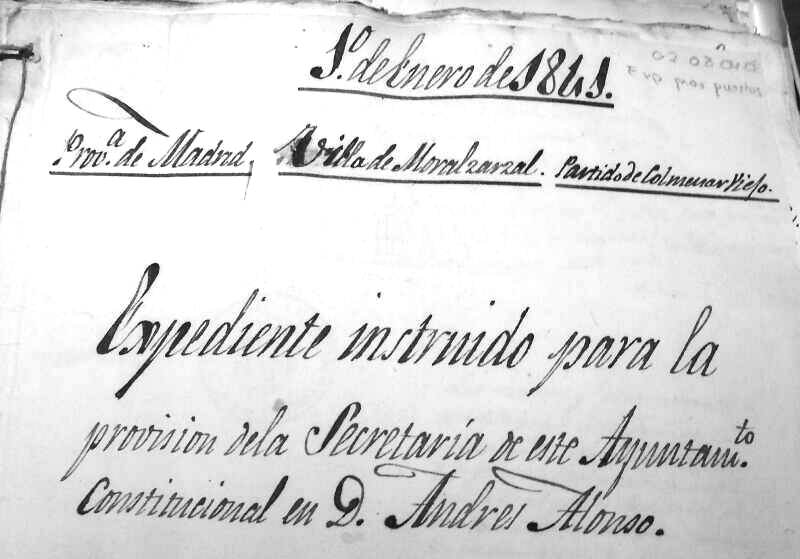 1º. de Enero de 1841.
Prov.ª de Madrid, Villa de Moralzarzal. Partido de Colmenar Viejo.
Expediente instruido para la
provision dela Secretaría de este Ayuntam.to
Constitucional en D. Andres Alonso.